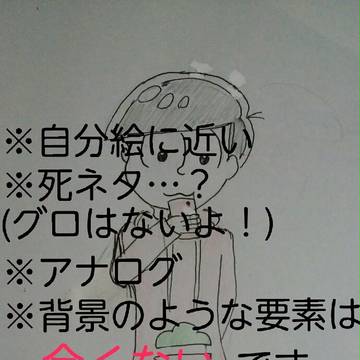 ※自分絵に近い
※死ネタ…？
(グロはないよ！)
※アナログ
※背景のような要素は
全くないです